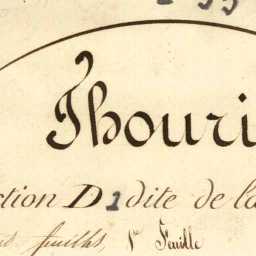 Thouri
ction D1 dite de la
feuilles, 1re Feuille